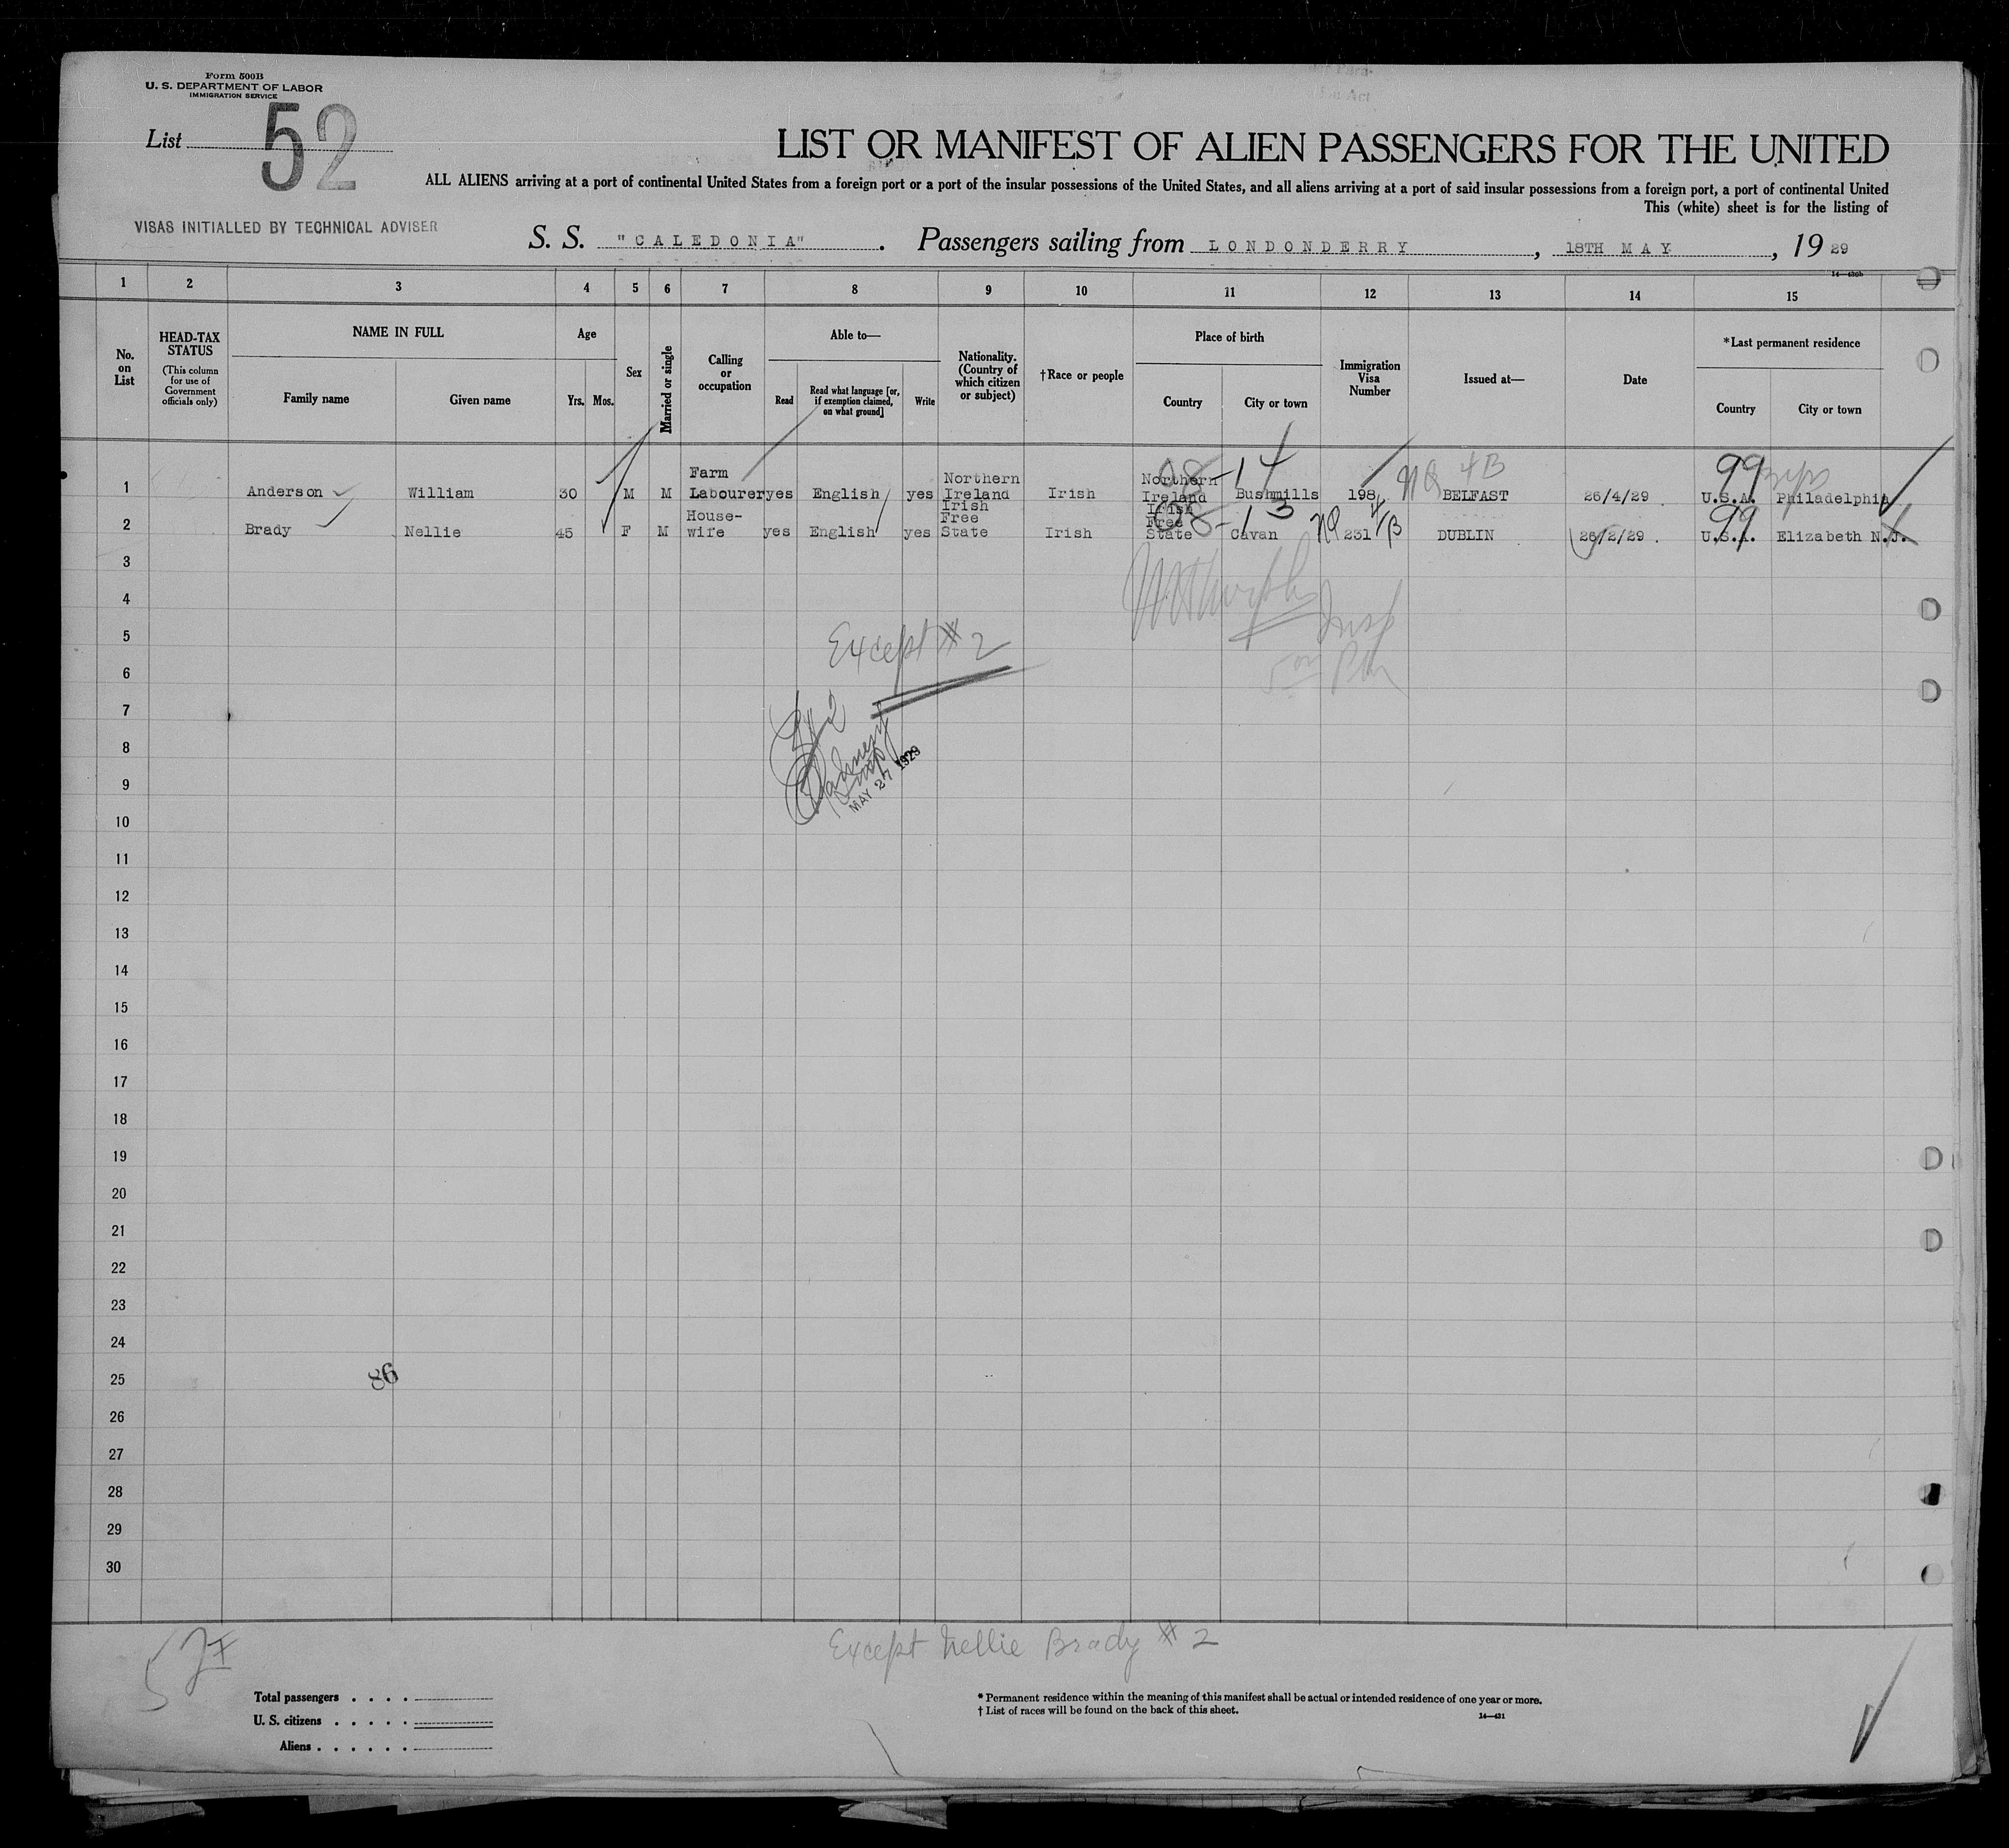 Form 500B
U. S. DEPARTMENT OF LABOR
IMMIGRATION SERVICE
List 52
LIST OR MANIFEST OF ALIEN PASSENGERS FOR THE UNITED
ALL ALIENS arriving at a port of continental United States from a foreign port or a port of the insular possessions of the United States, and all aliens arriving at a port of said insular possessions from a foreign port, a port of continental United
This (white) sheet is for the listing of
VISAS INITIALLED BY TECHNICAL ADVISER
S. S. "CALEDONIA". Passengers sailing from LONDONDERRY, 18TH MAY, 1929
1 2 3 4 5 6 7 8 9 10 11 12 13 14 15
No. on List
HEAD-TAX STATUS
(This column for use of Government officials only)
NAME IN FULL
Family name Given name
Age
Yrs. Mos.
Sex
Married or single
Calling or occupation
Able to—
Read
Read what language [or, if exemption claimed, on what ground]
Write
Nationality. (Country of which citizen or subject)
†Race or people
Place of birth
Country City or town
Immigration Visa Number
Issued at—
Date
*Last permanent residence
Country City or town
1 Anderson William 30 M M Farm Labourer yes English yes Northern Ireland Irish Northern Ireland Bushmills 198 BELFAST 26/4/29 U.S.A. Philadelphia
08-14 NQ 4B 99
2 Brady Nellie 45 F M House-wife yes English yes Irish Free State Irish Irish Free State Cavan 231 DUBLIN 26/2/29 U.S.A. Elizabeth N.J.
08-13 NQ 4/B 99
3
4
5
Except # 2
6
7
8
9
MAY 27 1929
10
11
12
13
14
15
16
17
18
19
20
21
22
23
24
25
86
26
27
28
29
30
Except Nellie Brady # 2
Total passengers
U. S. citizens
Aliens
* Permanent residence within the meaning of this manifest shall be actual or intended residence of one year or more.
† List of races will be found on the back of this sheet.
14—431